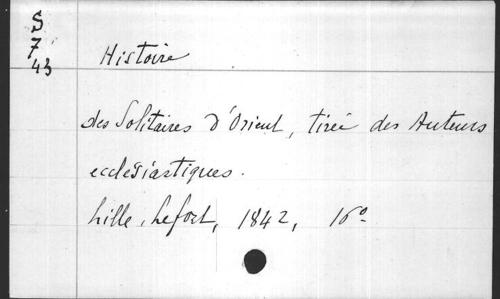 S
7
43
Histoire
des Solitaires d'Orient, tirée des Auteurs
ecclésiastiques.
Lille, Lefort, 1842, 16º